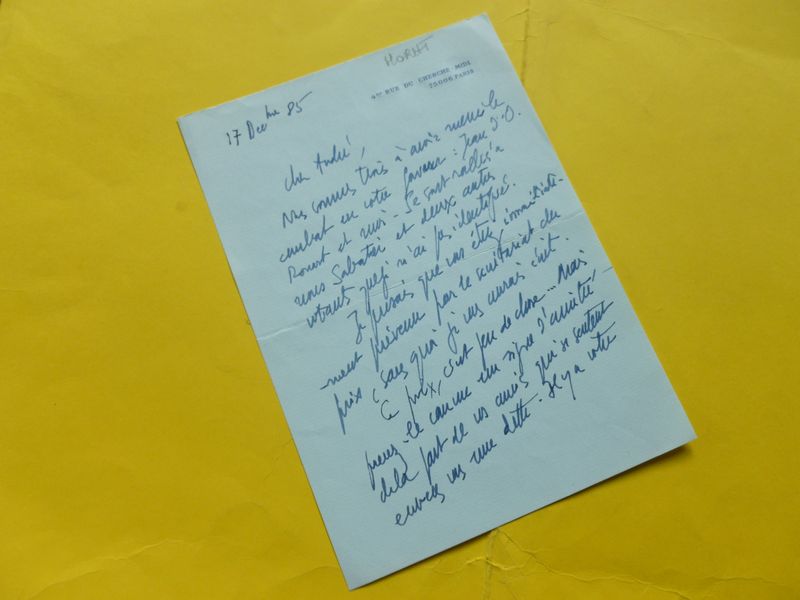 MORAT
RUE DU CHERCHE-MIDI
75006 PARIS
17 Decbre 85
Cher André,
Nous sommes trois à avoir mené le
combat en votre faveur : Jean d'O.
Rouart et moi - Se sont ralliés à
nous Sabatier et deux autres
votants que je n'ai pas identifiés.
Je pensais que vous étiez immédiate-
-ment prévenu par le secrétariat du
prix (sans quoi je vous aurais écrit.
Ce prix, c'est peu de chose... Mais
prenez-le comme un signe d'amitié
de la part de vos amis qui se sentent
envers vous une dette. Il y a votre